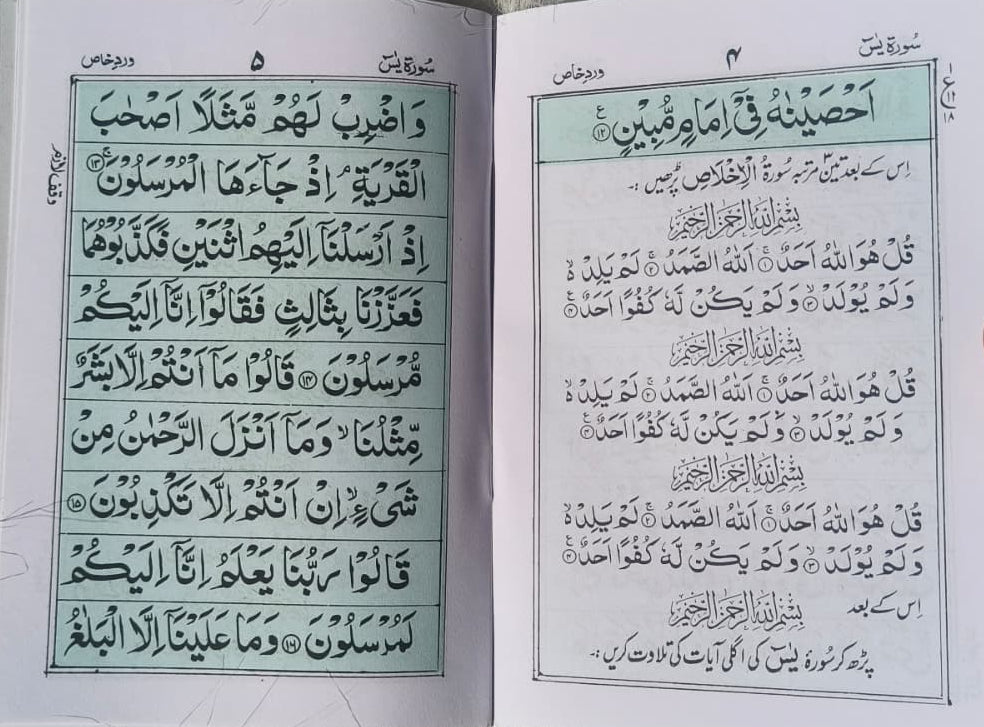 سُورۃ یٰسٓ
۴
وردِ خاص
اَحْصَیْنٰهُ فِیْۤ اِمَامٍ مُّبِیْنٍ ۝۱۲ ع
ع
۱۸
اِس کے بعد تین ۳ مرتبہ سُورۃُ الْاِخْلَاصِ پڑھیں :۔
بِسْمِ اللّٰهِ الرَّحْمٰنِ الرَّحِیْمِ
قُلْ هُوَ اللّٰهُ اَحَدٌ ۝۱ اَللّٰهُ الصَّمَدُ ۝۲ لَمْ یَلِدْ
وَلَمْ یُوْلَدْ ۝۳ وَلَمْ یَكُنْ لَّهٗ كُفُوًا اَحَدٌ ۝۴
بِسْمِ اللّٰهِ الرَّحْمٰنِ الرَّحِیْمِ
قُلْ هُوَ اللّٰهُ اَحَدٌ ۝۱ اَللّٰهُ الصَّمَدُ ۝۲ لَمْ یَلِدْ
وَلَمْ یُوْلَدْ ۝۳ وَلَمْ یَكُنْ لَّهٗ كُفُوًا اَحَدٌ ۝۴
بِسْمِ اللّٰهِ الرَّحْمٰنِ الرَّحِیْمِ
قُلْ هُوَ اللّٰهُ اَحَدٌ ۝۱ اَللّٰهُ الصَّمَدُ ۝۲ لَمْ یَلِدْ
وَلَمْ یُوْلَدْ ۝۳ وَلَمْ یَكُنْ لَّهٗ كُفُوًا اَحَدٌ ۝۴
اِس کے بعد بِسْمِ اللّٰهِ الرَّحْمٰنِ الرَّحِیْمِ
پڑھ کر سُورۂ یٰسٓ کی اگلی آیات کی تلاوت کریں :۔
سُورۃ یٰسٓ
۵
وردِ خاص
وَاضْرِبْ لَهُمْ مَّثَلًا اَصْحٰبَ
الْقَرْیَةِ ۘ اِذْ جَآءَهَا الْمُرْسَلُوْنَ ۝۱۳
وقف لازم
اِذْ اَرْسَلْنَاۤ اِلَیْهِمُ اثْنَیْنِ فَكَذَّبُوْهُمَا
فَعَزَّزْنَا بِثَالِثٍ فَقَالُوْۤا اِنَّاۤ اِلَیْكُمْ
مُّرْسَلُوْنَ ۝۱۴ قَالُوْا مَاۤ اَنْتُمْ اِلَّا بَشَرٌ
مِّثْلُنَا ۙ وَمَاۤ اَنْزَلَ الرَّحْمٰنُ مِنْ
شَیْءٍ ۙ اِنْ اَنْتُمْ اِلَّا تَكْذِبُوْنَ ۝۱۵
قَالُوْا رَبُّنَا یَعْلَمُ اِنَّاۤ اِلَیْكُمْ
لَمُرْسَلُوْنَ ۝۱۶ وَمَا عَلَیْنَاۤ اِلَّا الْبَلٰغُ